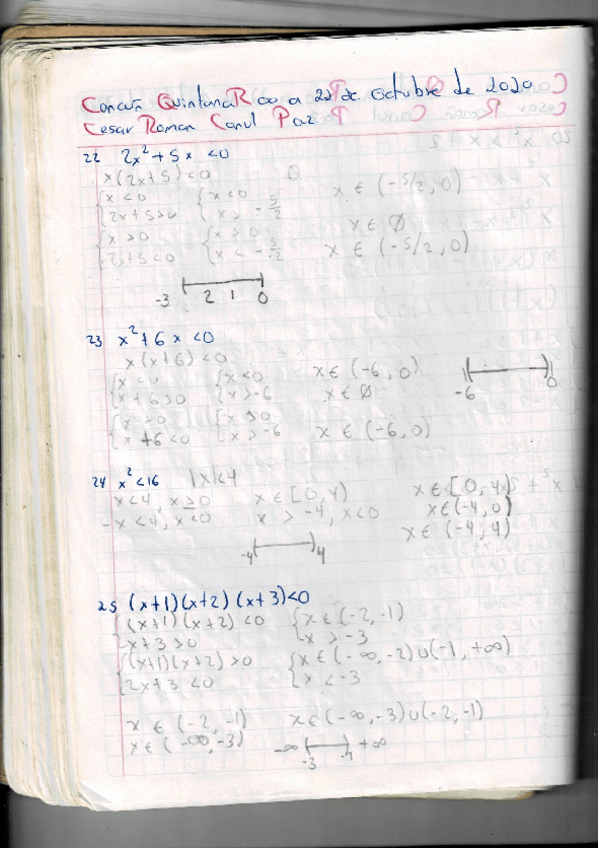 Cancún Quintana Roo a 22 de Octubre de 2020
Cesar Roman Canul Paz
22 2x² + 5x < 0
x(2x+5) < 0
{x < 0 {x < 0 x ∈ (-5/2, 0)
{2x+5>0 {x > -5/2
x ∈ ∅
{x > 0 {x > 0 x ∈ (-5/2, 0)
{2+5<0 {x < -5/2
-3 2 1 0
23 x² + 6x < 0
x(x+6) < 0
{x < 0 {x < 0 x ∈ (-6, 0)
{x+6>0 {x > -6 x ∈ ∅
-6 0
{x > 0 {x > 0
{x +6 < 0 {x > -6 x ∈ (-6, 0)
24 x² < 16 |x|<4
x < 4, x ≥ 0 x ∈ [0, 4) x ∈ [0, 4)
-x < 4, x < 0 x > -4, x < 0 x ∈ (-4, 0)
x ∈ (-4, 4)
-4 4
25 (x+1)(x+2)(x+3)<0
{(x+1)(x+2) < 0 {x ∈ (-2, -1)
{x+3 > 0 {x > -3
{(x+1)(x+2) > 0 {x ∈ (-∞, -2) ∪ (-1, +∞)
{2x+3 < 0 {x < -3
x ∈ (-2, -1) x ∈ (-∞, -3) ∪ (-2, -1)
x ∈ (-∞, -3)
-∞ -3 -1 +∞